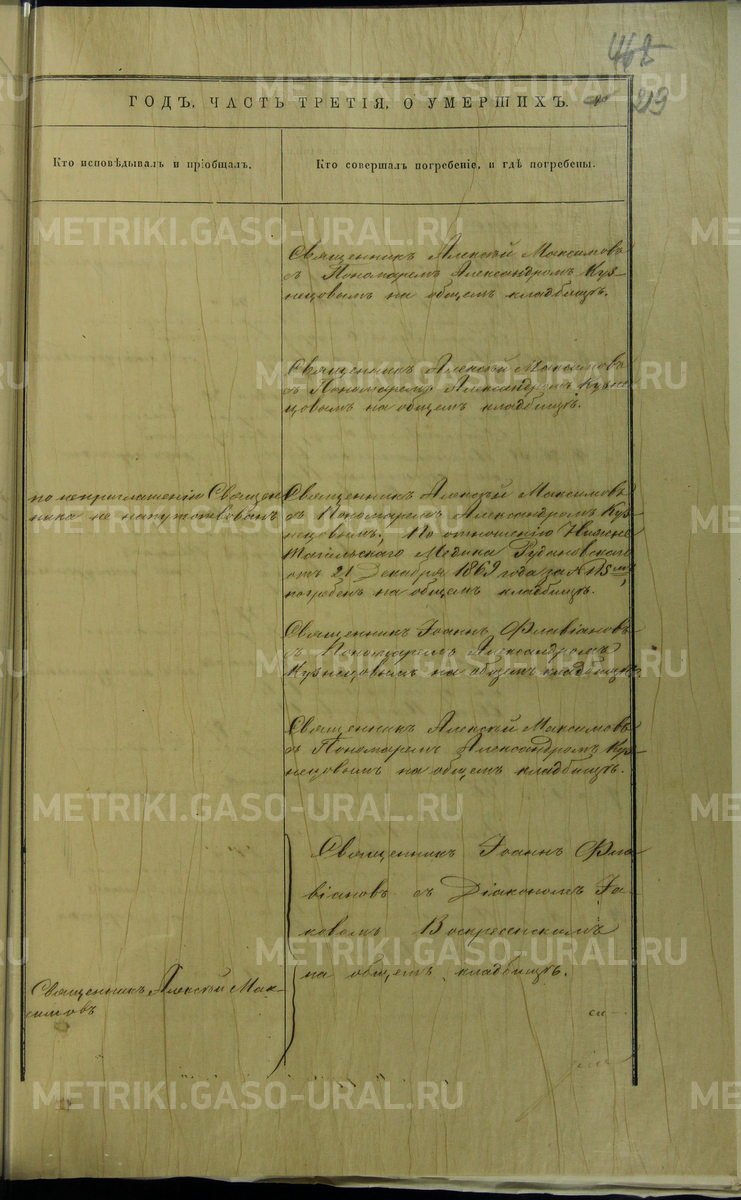 468
219
ГОДЪ, ЧАСТЬ ТРЕТІЯ, О УМЕРШИХЪ.
Кто исповѣдывалъ и пріобщалъ.
Кто совершалъ погребеніе, и гдѣ погребены.
Священникъ Алексѣй Максимовъ
съ Пономаремъ Александромъ Куз-
нецовымъ на общемъ кладбищѣ.
Священникъ Алексѣй Максимовъ
съ Пономаремъ Александромъ Кузне
цовымъ на общемъ кладбищѣ.
по неприглашенію Священ
ника не напутствованъ
Священникъ Алексѣй Максимовъ
съ Пономаремъ Александромъ Куз-
нецовымъ, По отношенію Нижне
Тагильскаго Медика Рудановскаго
отъ 21 Декабря 1869 года за № 115м
погребенъ на общемъ кладбищѣ.
Священникъ Іоаннъ Флавіановъ
съ Пономаремъ Александромъ
Кузнецовымъ на общемъ кладбищѣ
Священникъ Алексѣй Максимовъ
съ Пономаремъ Александромъ Куз-
нецовымъ на общемъ кладбищѣ.
Священникъ Іоаннъ Фла-
віановъ съ Діакономъ Іа-
ковомъ Воскресенскимъ
на общемъ кладбищѣ.
Священникъ Алексѣй Мак-
симовъ
METRIKI.GASO-URAL.RU